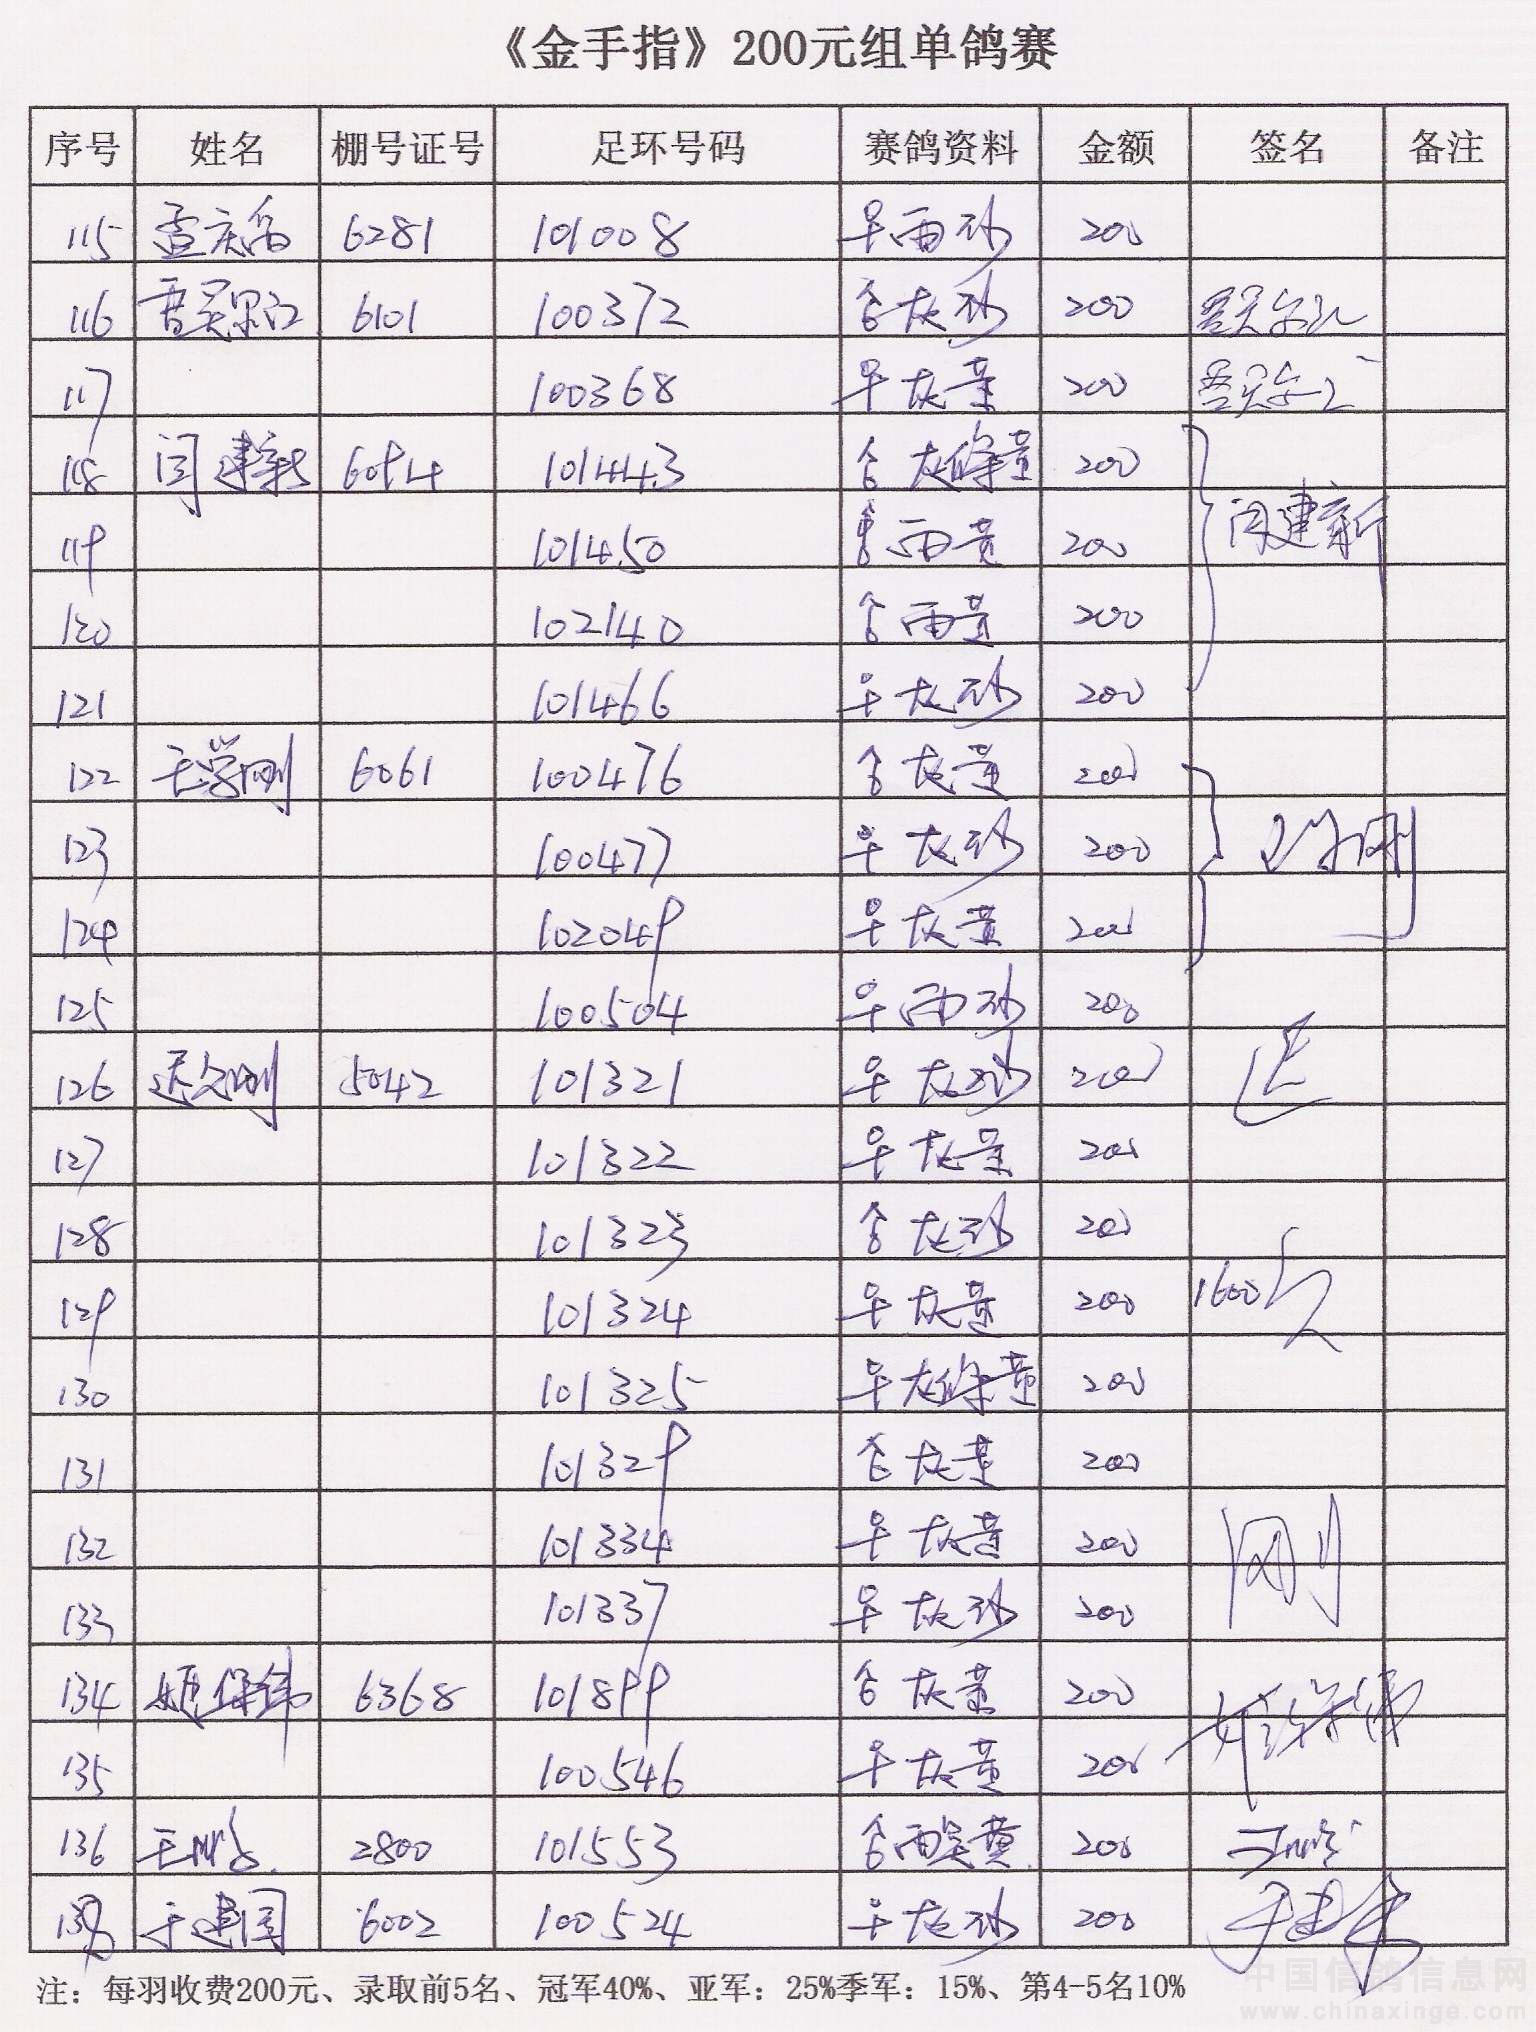 《金手指》200元组单鸽赛
序号 姓名 棚号证号 足环号码 赛鸽资料 金额 签名 备注
115 孟庆 6281 101008 早雨砂 200
116 6101 100372 舍灰砂 200
117 100368 早灰黄 200
118 闫建新 6094 101443 舍灰绛黄 200
119 101450 舍雨黄 200 闫建新
120 102140 舍雨黄 200
121 101466 早灰砂 200
122 王学刚 6061 100476 舍灰黄 200
123 100477 早灰砂 200 王学刚
124 102049 早灰黄 200
125 100504 早雨砂 200
126 迟文刚 5042 101321 早灰砂 200 迟
127 101322 早灰黄 200
128 101323 舍灰砂 200
129 101324 早灰黄 200 1600 文
130 101325 早灰绛黄 200
131 101329 舍灰黄 200
132 101334 早灰黄 200 刚
133 101337 早灰砂 200
134 姬保纬 6368 101899 舍灰黄 200
135 100546 早灰黄 200
136 2800 101553 舍雨黄 200
137 于建国 6002 100524 早灰砂 200 于建
注：每羽收费200元、录取前5名、冠军40%、亚军：25%季军：15%、第4-5名10%
中国信鸽信息网
www.chinaxinge.com